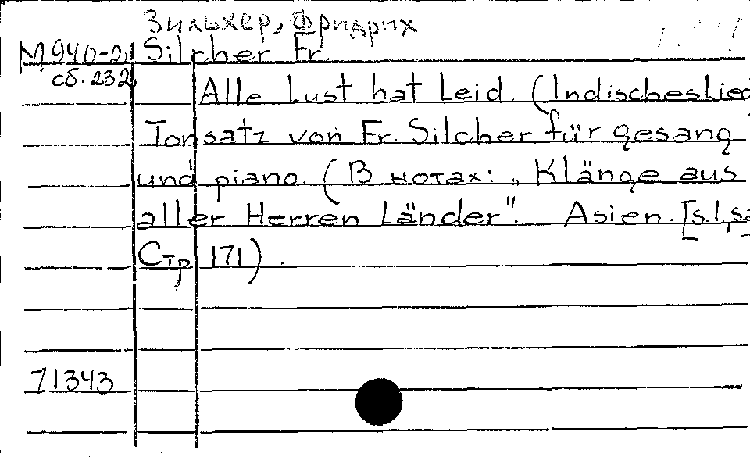 Зильхер, Фридрих
М940-2 Silcher Fr.
сб. 232
Alle Lust hat Leid. (Indischeslied
Tonsatz von Fr. Silcher für gesang
und piano. (В нотах: „Klänge aus
aller Herren Länder". Asien. [s.l,sa
Стр 171).
71343